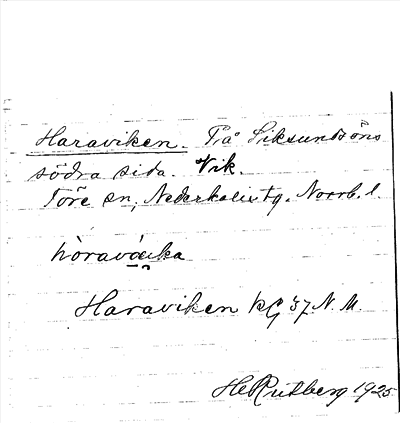 Haraviken. På Siksundsöns
södra sida. Vik.
Töre sn, Nederkalix tg. Norrb. l.
Haraviken KG 37 N. M.
H Rutberg 1925